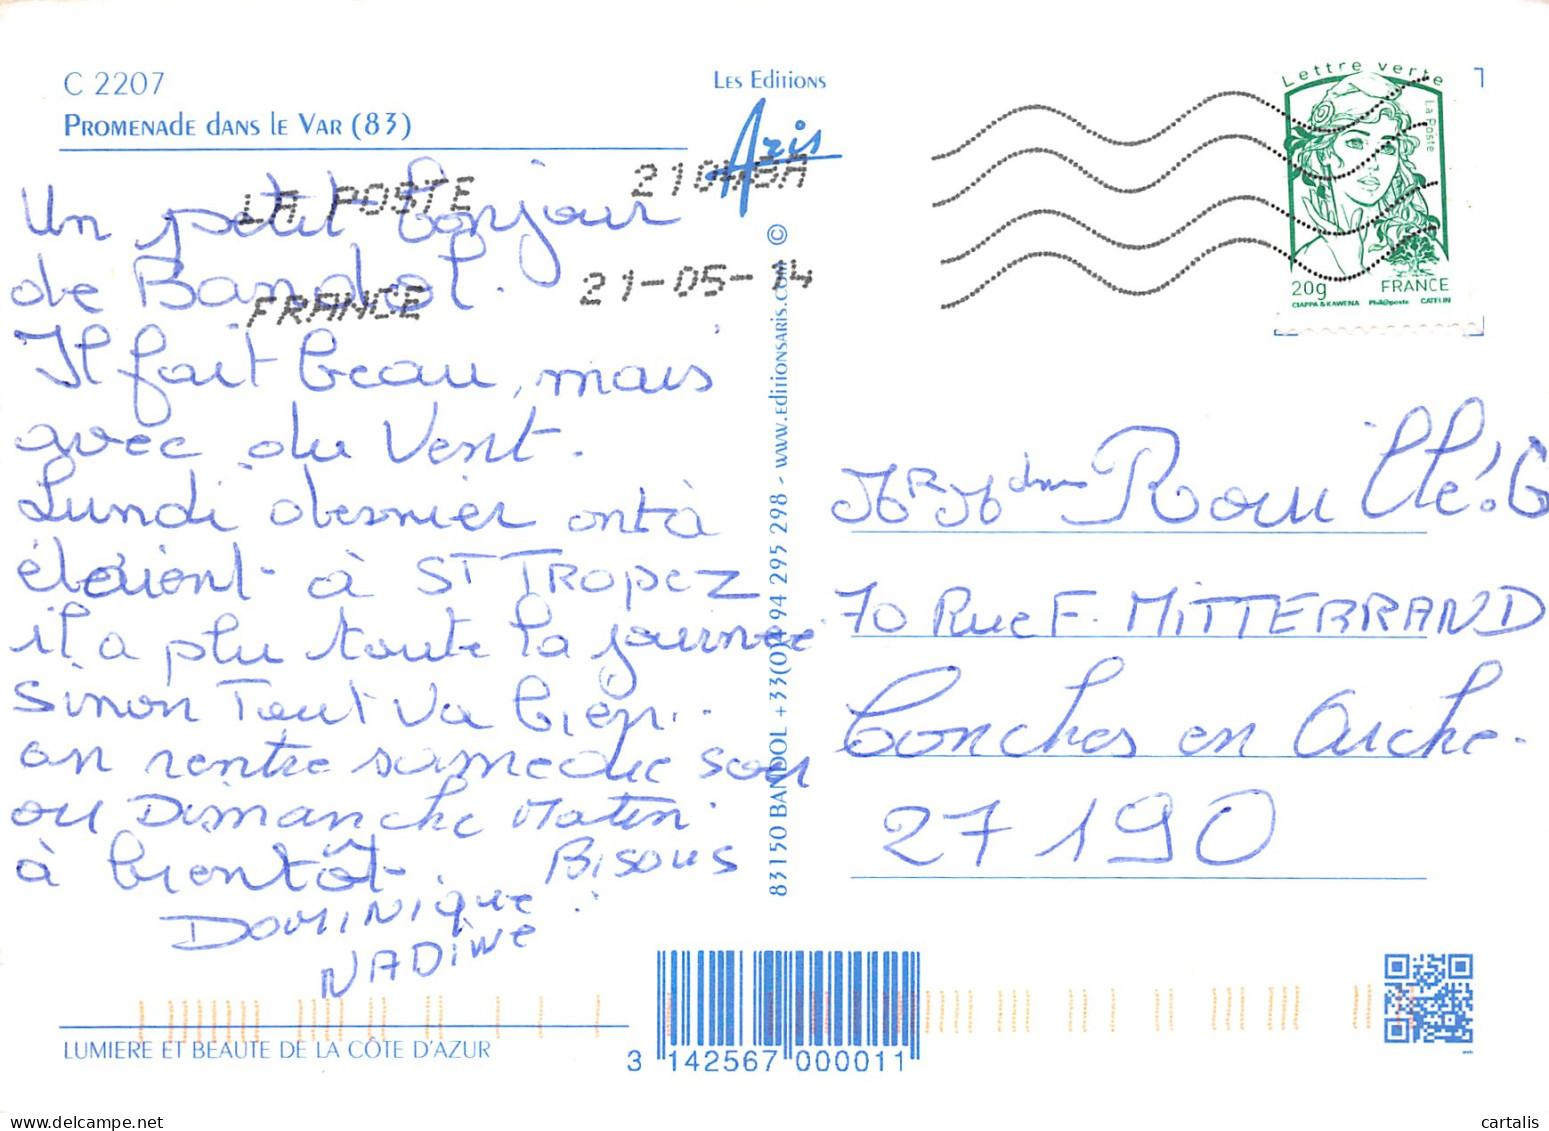 C 2207
PROMENADE DANS LE VAR (83)
Les Editions
Aris
LA POSTE
FRANCE
21-05-14
Lettre verte
La Poste
20g FRANCE
CIAPPA & KAWENA Phil@poste CATELIN
Un petit bonjour
de Bandol.
Il fait beau, mais
avec du Vent.
Lundi dernier ont à
étaient à ST TROPEZ
il a plu toute la journée
Sinon Tout Va bien..
on rentre samedie soir
ou Dimanche Matin.
à bientôt. Bisous
DOMINIQUE
NADINE
83150 BANDOL +33(0)4 94 295 298 - www.editionsaris.com ©
Rouillé. G
70 Rue F. MITTERRAND
Conches en Ouche.
27190
LUMIERE ET BEAUTE DE LA CÔTE D'AZUR
3 142567 000011
cartalis